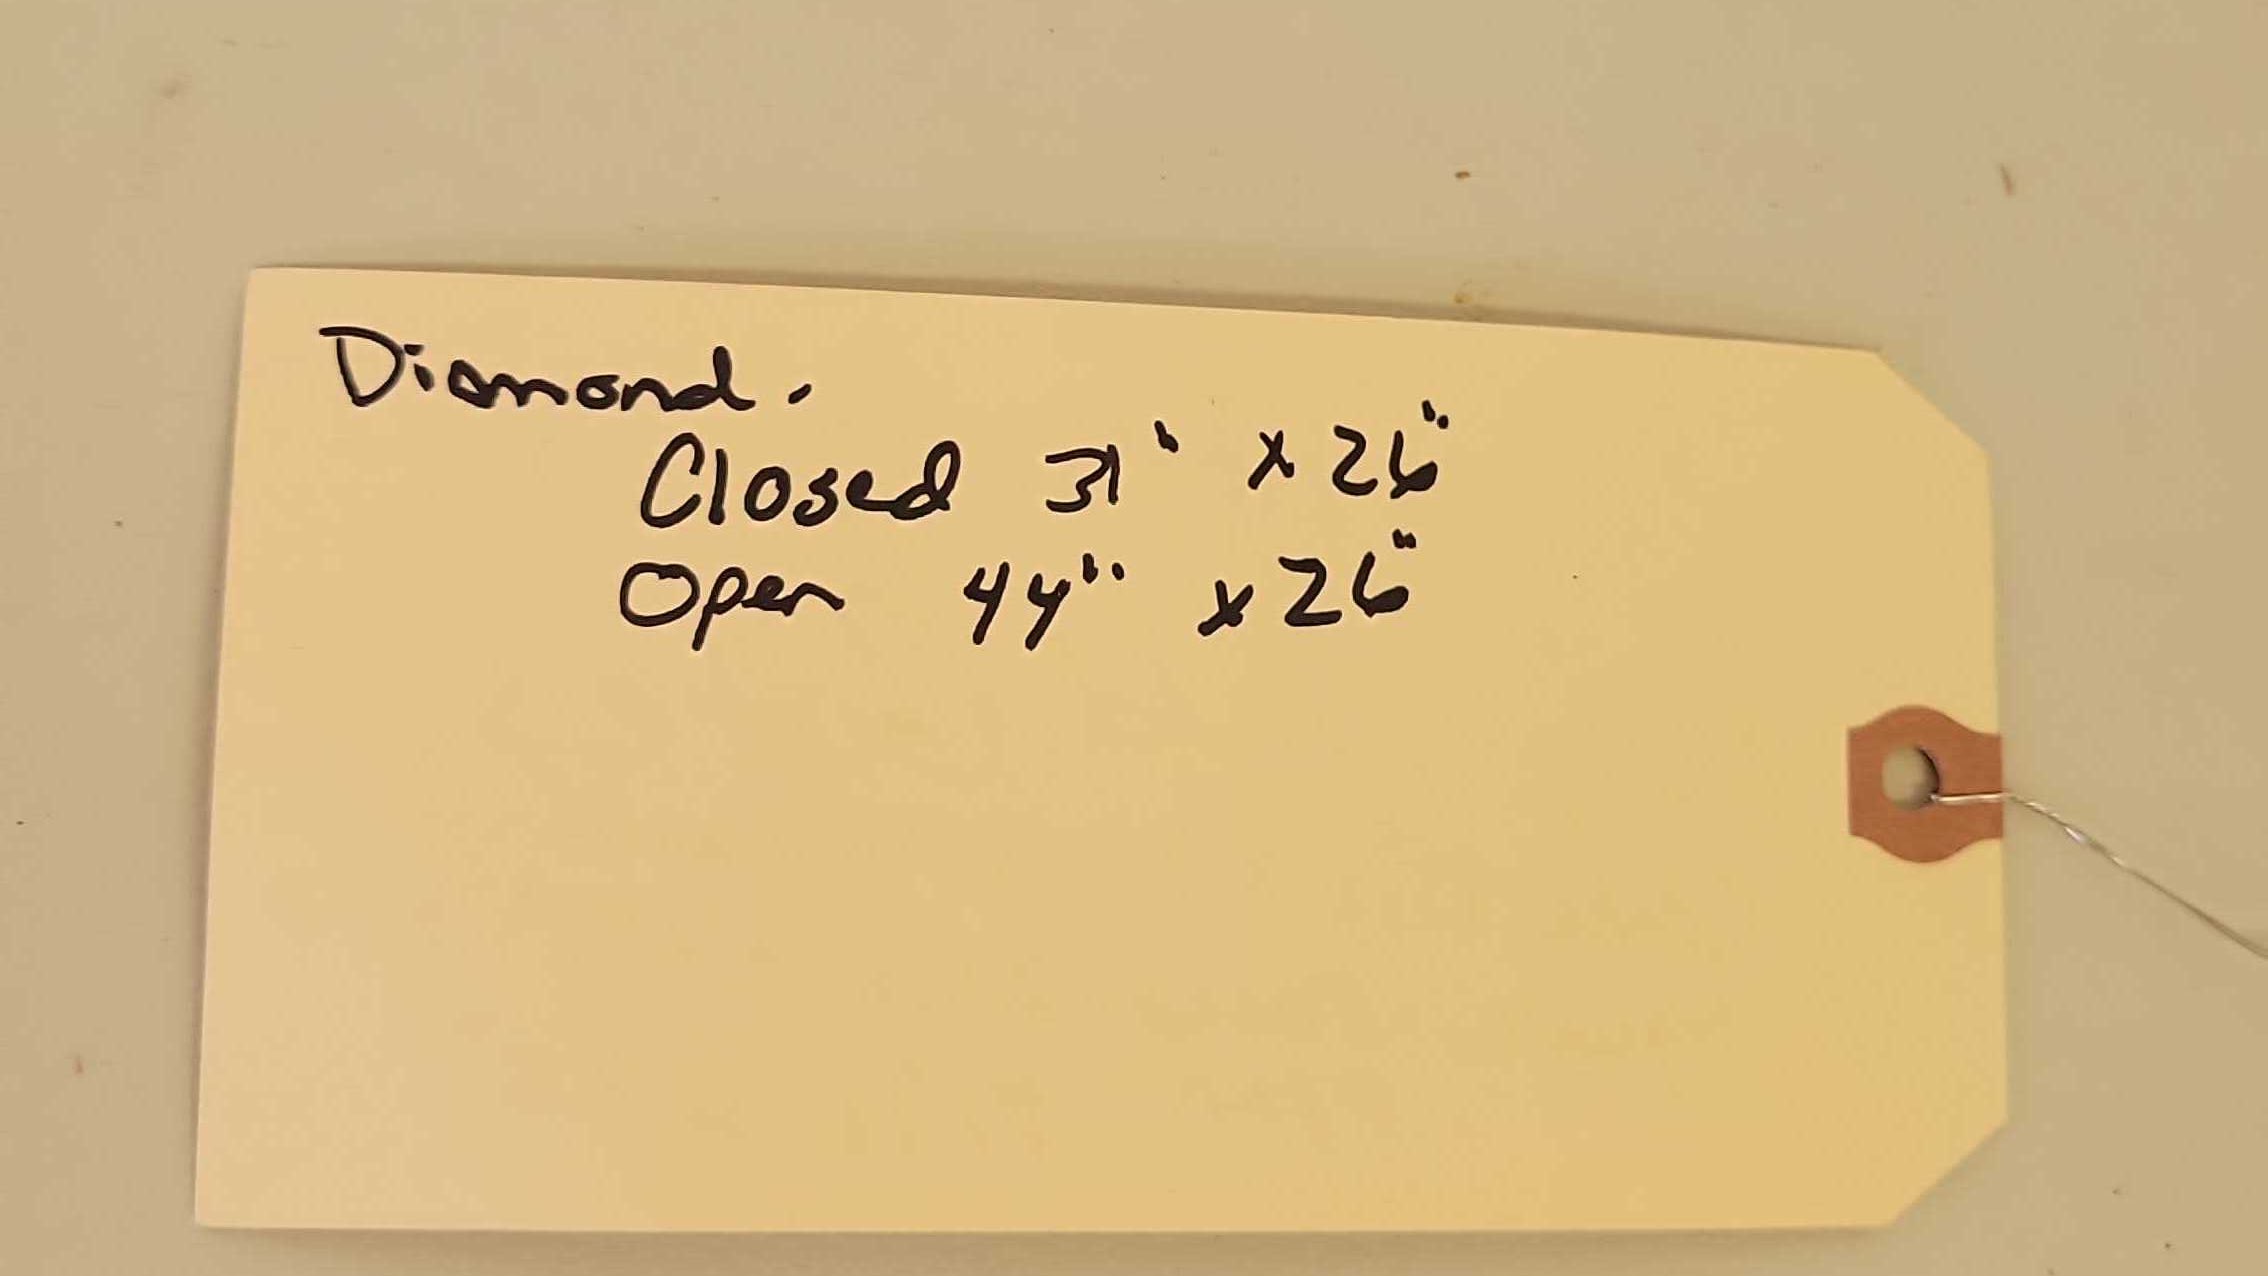 Diamond.
Closed 31" x 26"
Open 44" x 26"